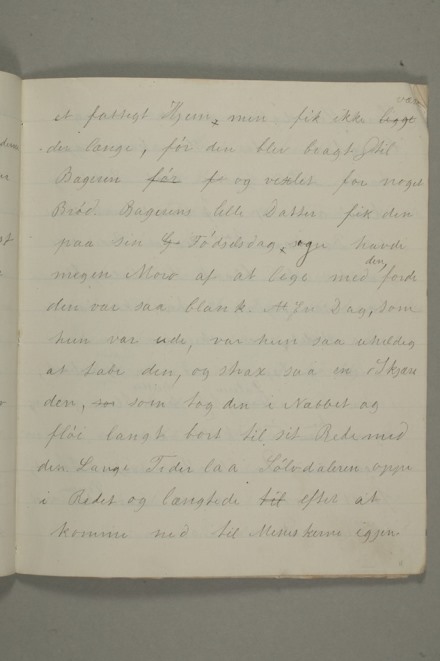 være
et fattigt Hjem, men fik ikke ligge
der længe, før den blev bragt til
Bageren for og vexlet for noget
Brød. Bagerens lille Datter fik den
paa sin Fødselsdag, og havde
megen Moro af at lege med den, fordi
den var saa blank. En Dag, som
hun var ude, var hun saa uheldig
at tabe den, og strax saa en Skjære
den, som tog den i Næbbet og
fløi langt bort til sit Rede med
den Lange Tider laa Sølvdaleren oppe
i Redet og længtede efter at
komme ned til Menneskerne igjen